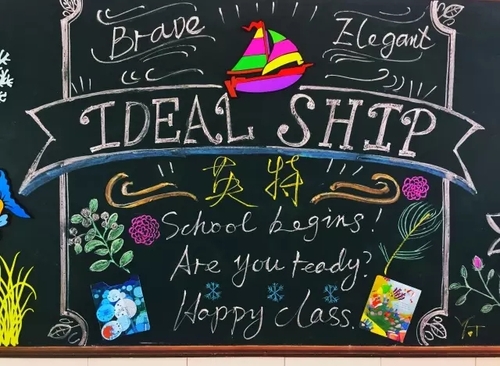 Brave Elegant
IDEAL SHIP
英特
School begins!
Are you ready?
Happy class.